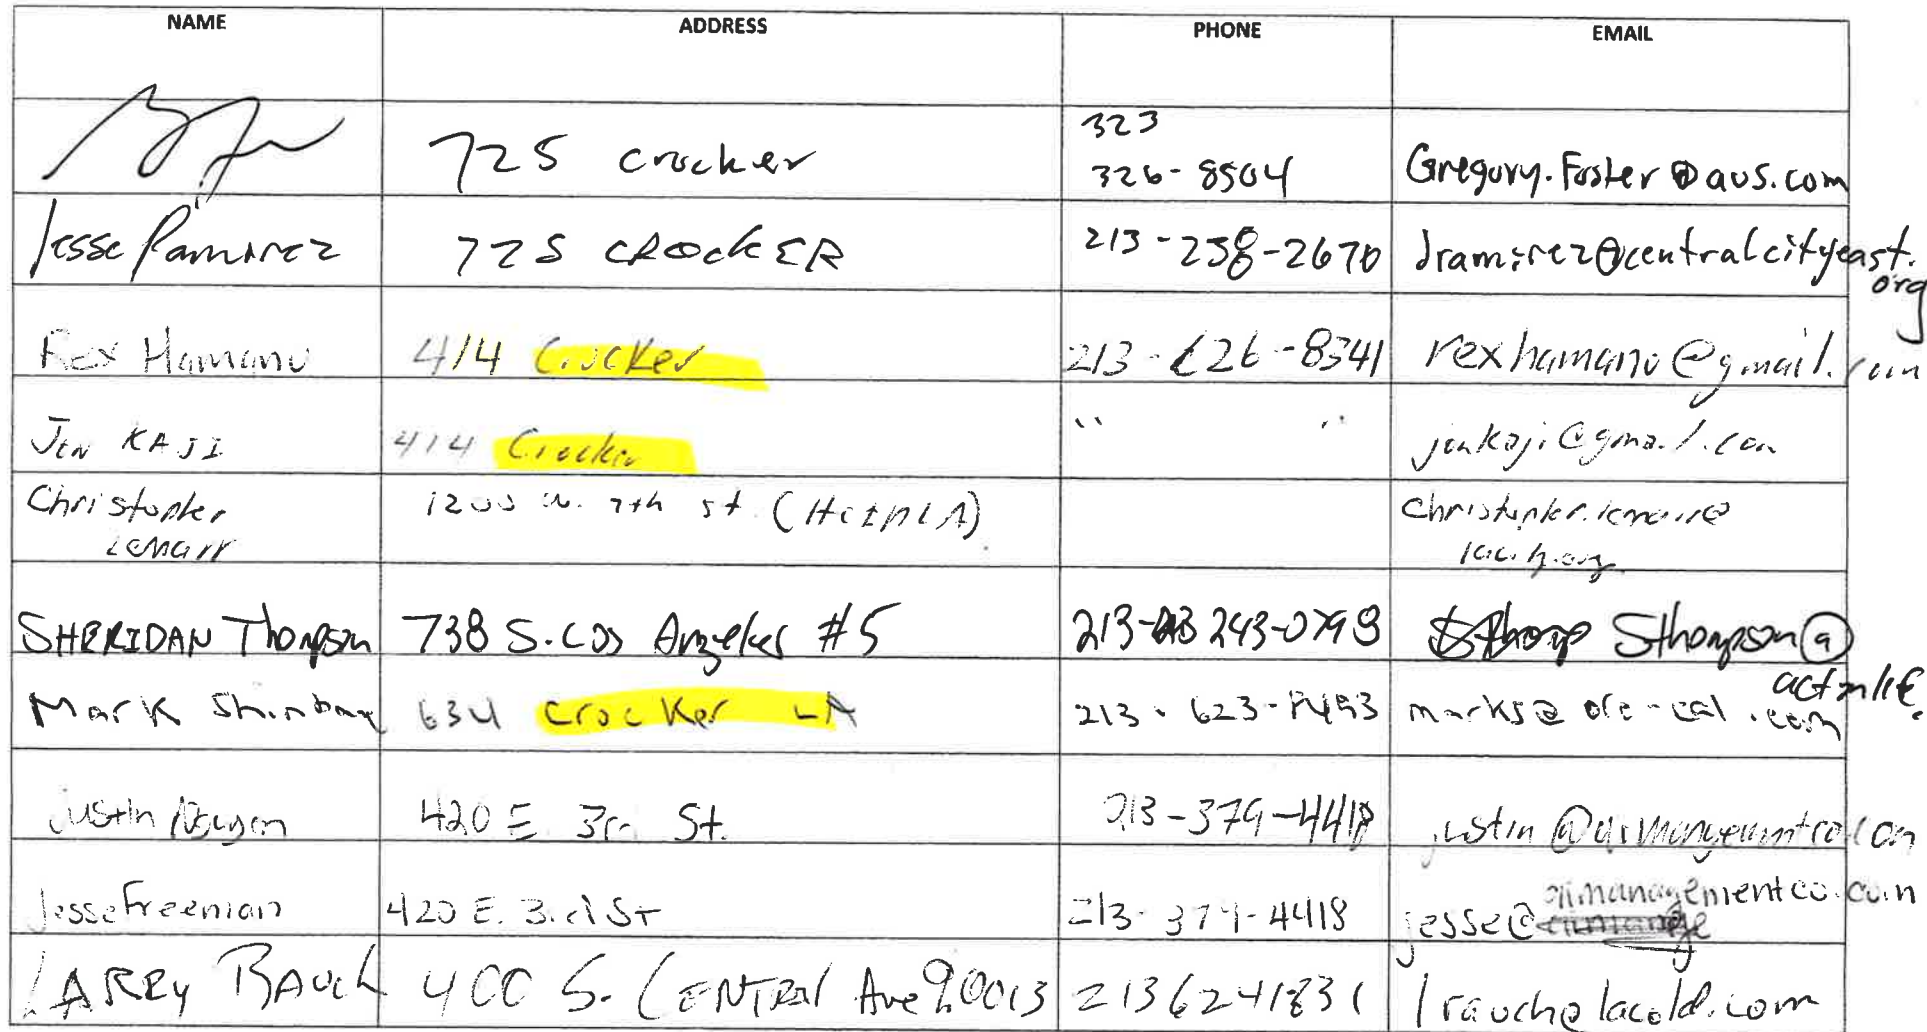 NAME ADDRESS PHONE EMAIL
725 Crocker 323 326-8504 Gregory.Foster@aus.com
Jesse Ramirez 725 CROCKER 213-258-2670 Jramirez@centralcityeast.org
Rex Hamano 414 Crocker 213-626-8341 rexhamano@gmail.com
Jon KAJI 414 Crocker " " jonkaji@gmail.com
Christopher 1200 W. 7th st. (HCIDLA)
738 S. Los Angeles #5 213-243-0798 Sthompson@
SHERIDAN Thompson actmlif.
Mark Shinbane 634 Crocker LA 213-623-8493 marks@ore-cal.com
Justin 420 E 3rd St. 213-379-4418 justin@
Jesse Freeman 420 E. 3rd St 213-379-4418 jesse@ aimanagementco.com
LARRY RAUCH 400 S. CENTRAL Ave 90013 2136241831 lrauch@lacold.com